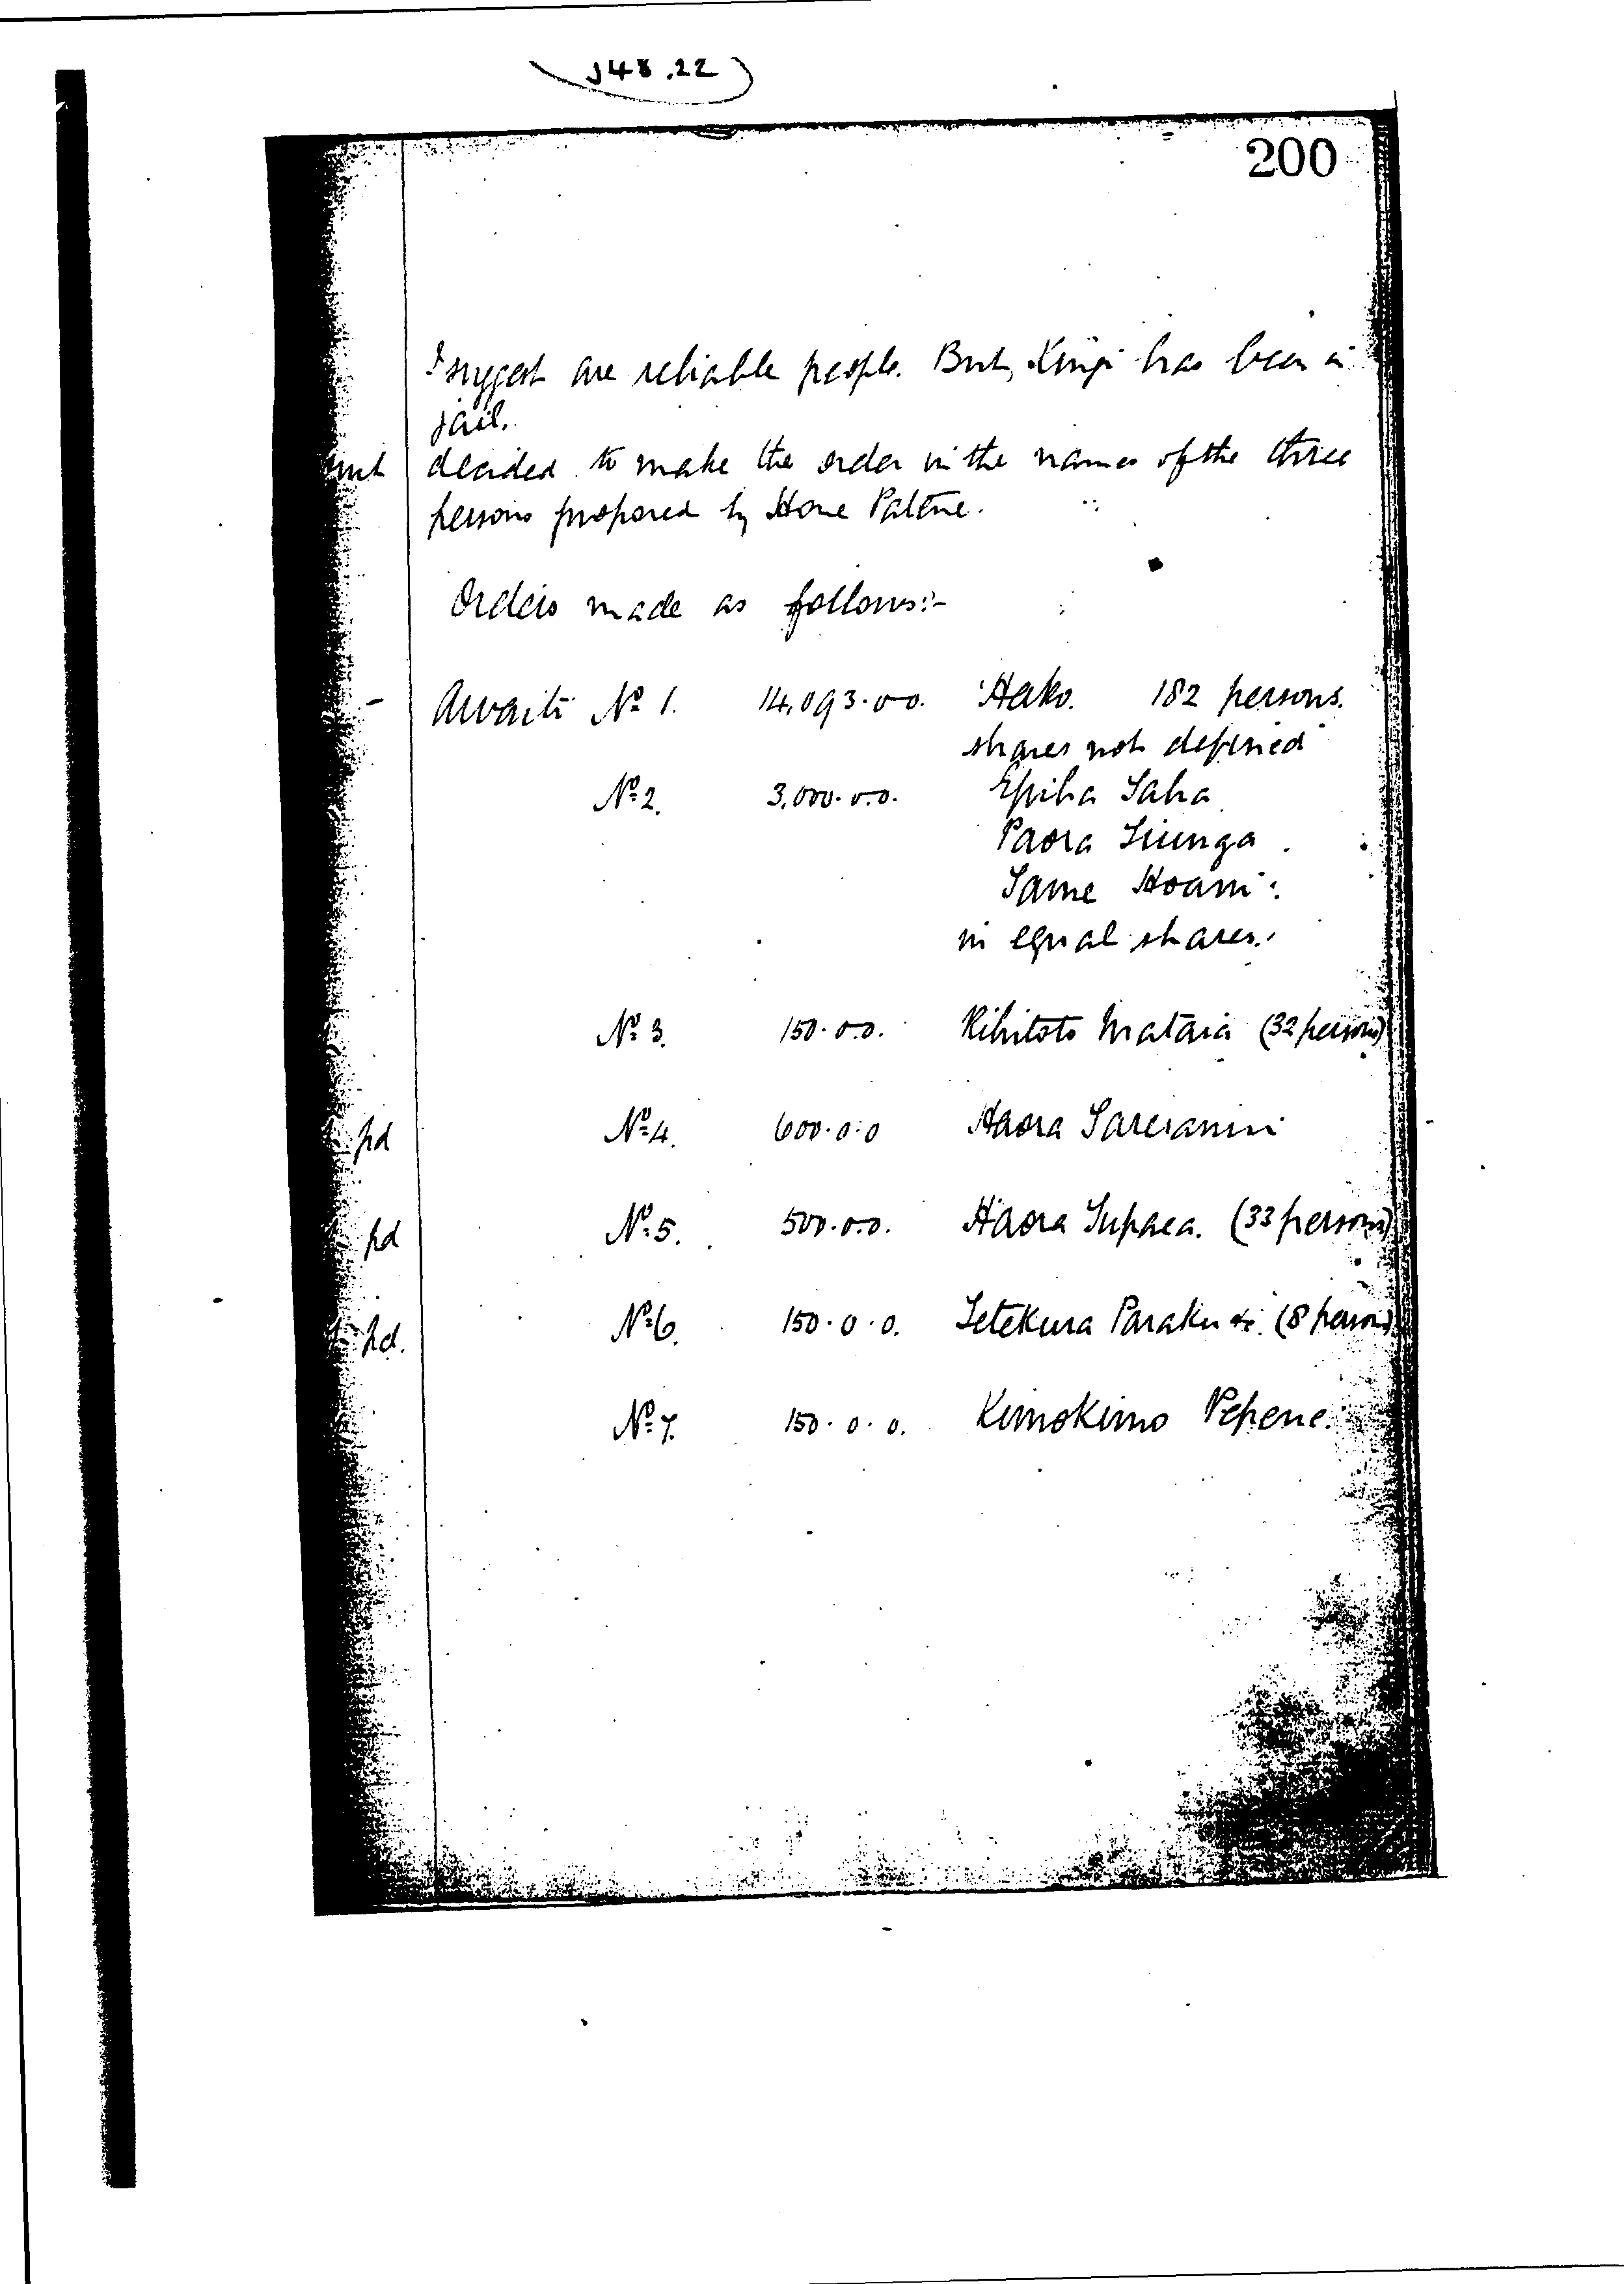 J48.22
200
I suggest are reliable people. But, Kingi has been in
jail.
decided to make the order in the names of the three
persons proposed by Hone Patene.
Orders made as follows:-
Awaiti No 1. 14,093.0.0. Hako. 182 persons.
shares not defined
No 2. 3,000.0.0. Epiha Taha
Paora Tiunga
Tame Hoani
in equal shares.
No 3. 150.0.0. Rihitoto Mataia (32 persons)
pd No 4. 600.0.0 Haora Tareranui
pd No 5. 500.0.0. Haora Tupaea. (33 persons)
pd. No 6. 150.0.0. Tetekura Paraku &c. (8 persons)
No 7. 150.0.0. Kimokimo Pepene.